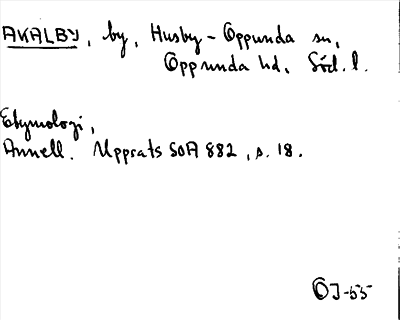 AKALBY, by, Husby-Oppunda sn,
Oppunda hd, Söd. l.
Etymologi,
Annell. Uppsats SOA 882, s. 18.
OJ-55